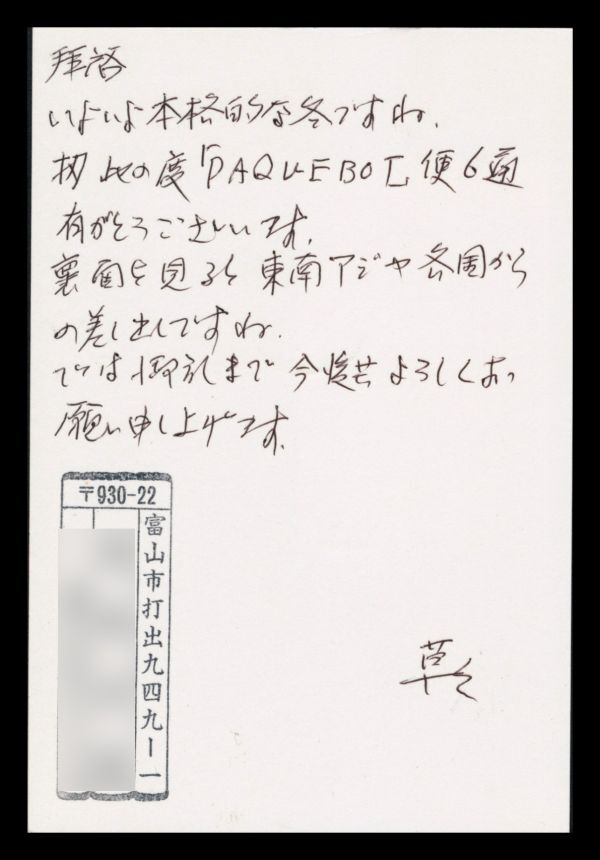 拝啓
いよいよ本格的な冬ですね。
扨此の度「PAQUEBOT」便6通
有がとうございます。
裏面を見ると東南アジヤ各国から
の差し出しですね。
では御礼まで今後共よろしくお
願い申し上げます。
草々
〒930-22
富山市打出九四九ー一